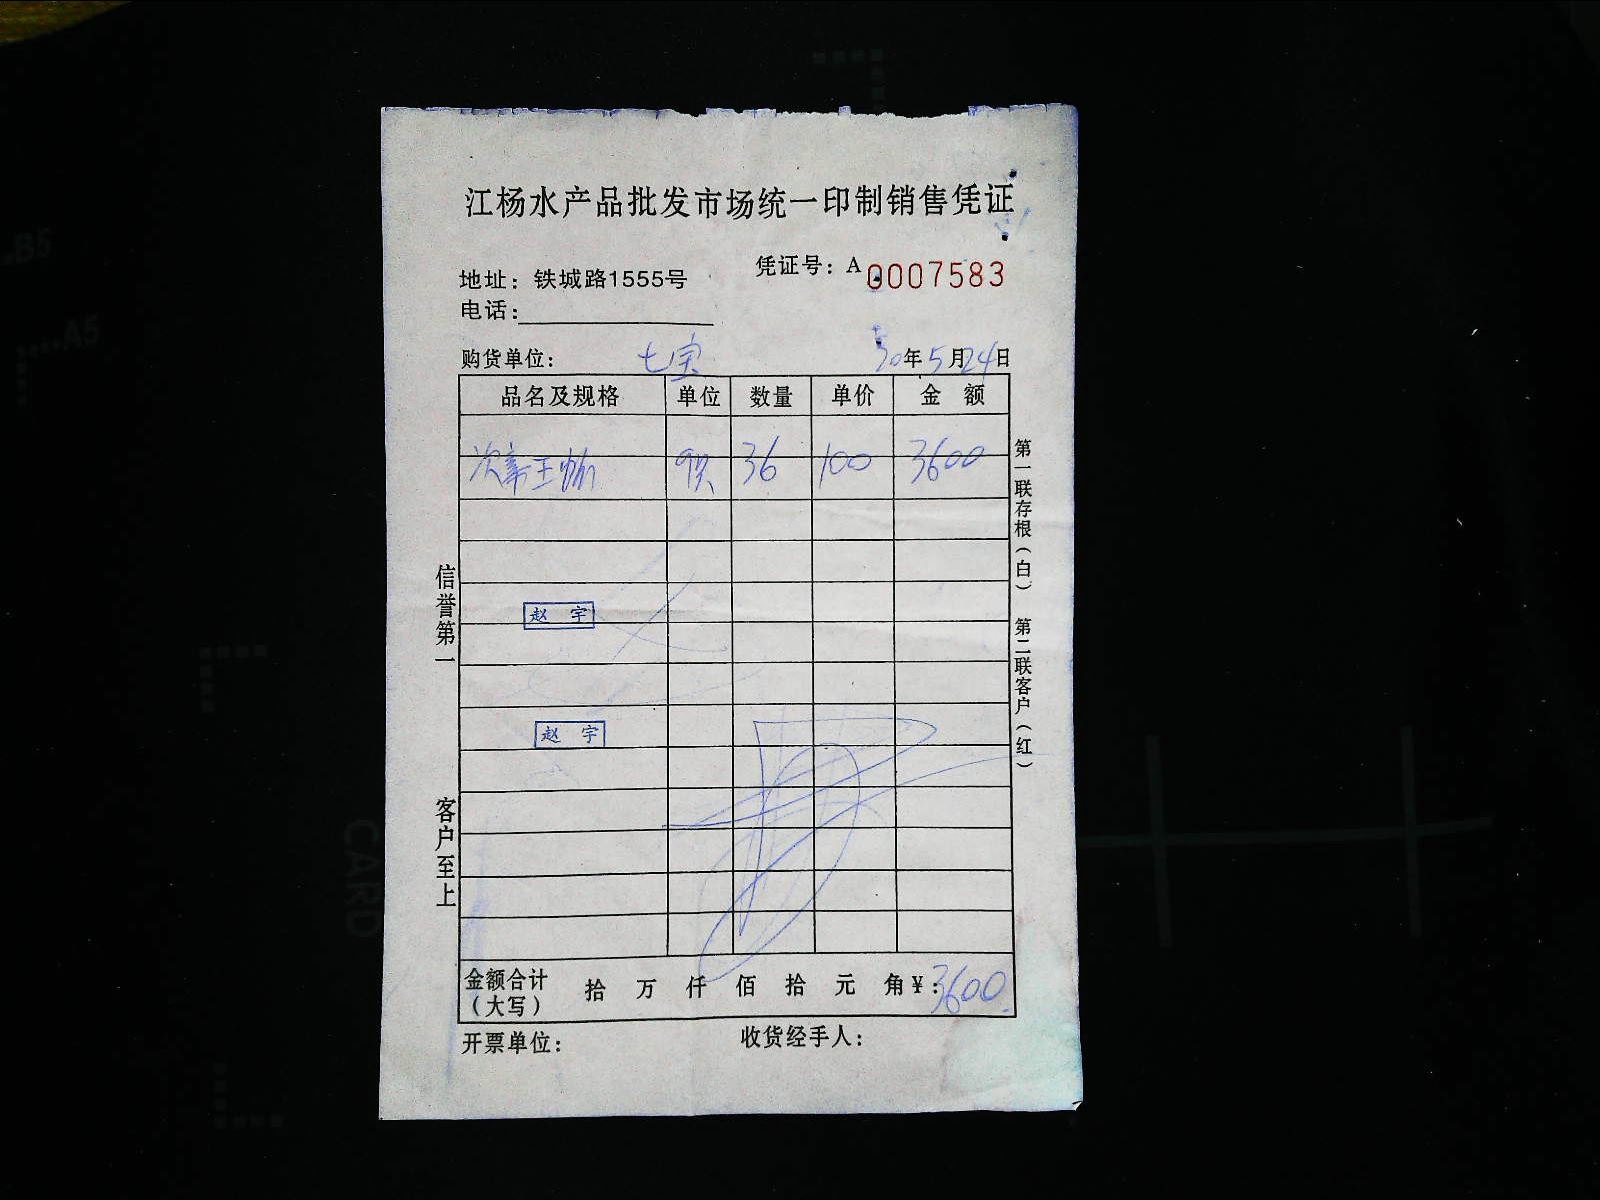 江杨水产品批发市场统一印制销售凭证
凭证号：A 0007583
地址：铁城路1555号
电话：
购货单位：七宝 年5月24日
品名及规格 单位 数量 单价 金 额
王 36 100 3600
赵 宇
赵 宇
金额合计（大写） 拾 万 仟 佰 拾 元 角 ¥：3600
开票单位： 收货经手人：
信誉第一
客户至上
第一联存根（白）
第二联客户（红）
B5
A5
CARD